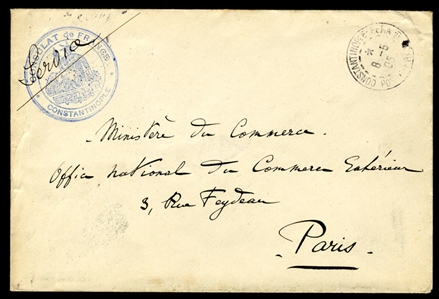 CONSULAT de FRANCE
CONSTANTINOPLE
Service
CONSTANTINOPLE PERA
8 -5
05
Ministère du Commerce.
Office National du Commerce Extérieur
3, Rue Feydeau
Paris.